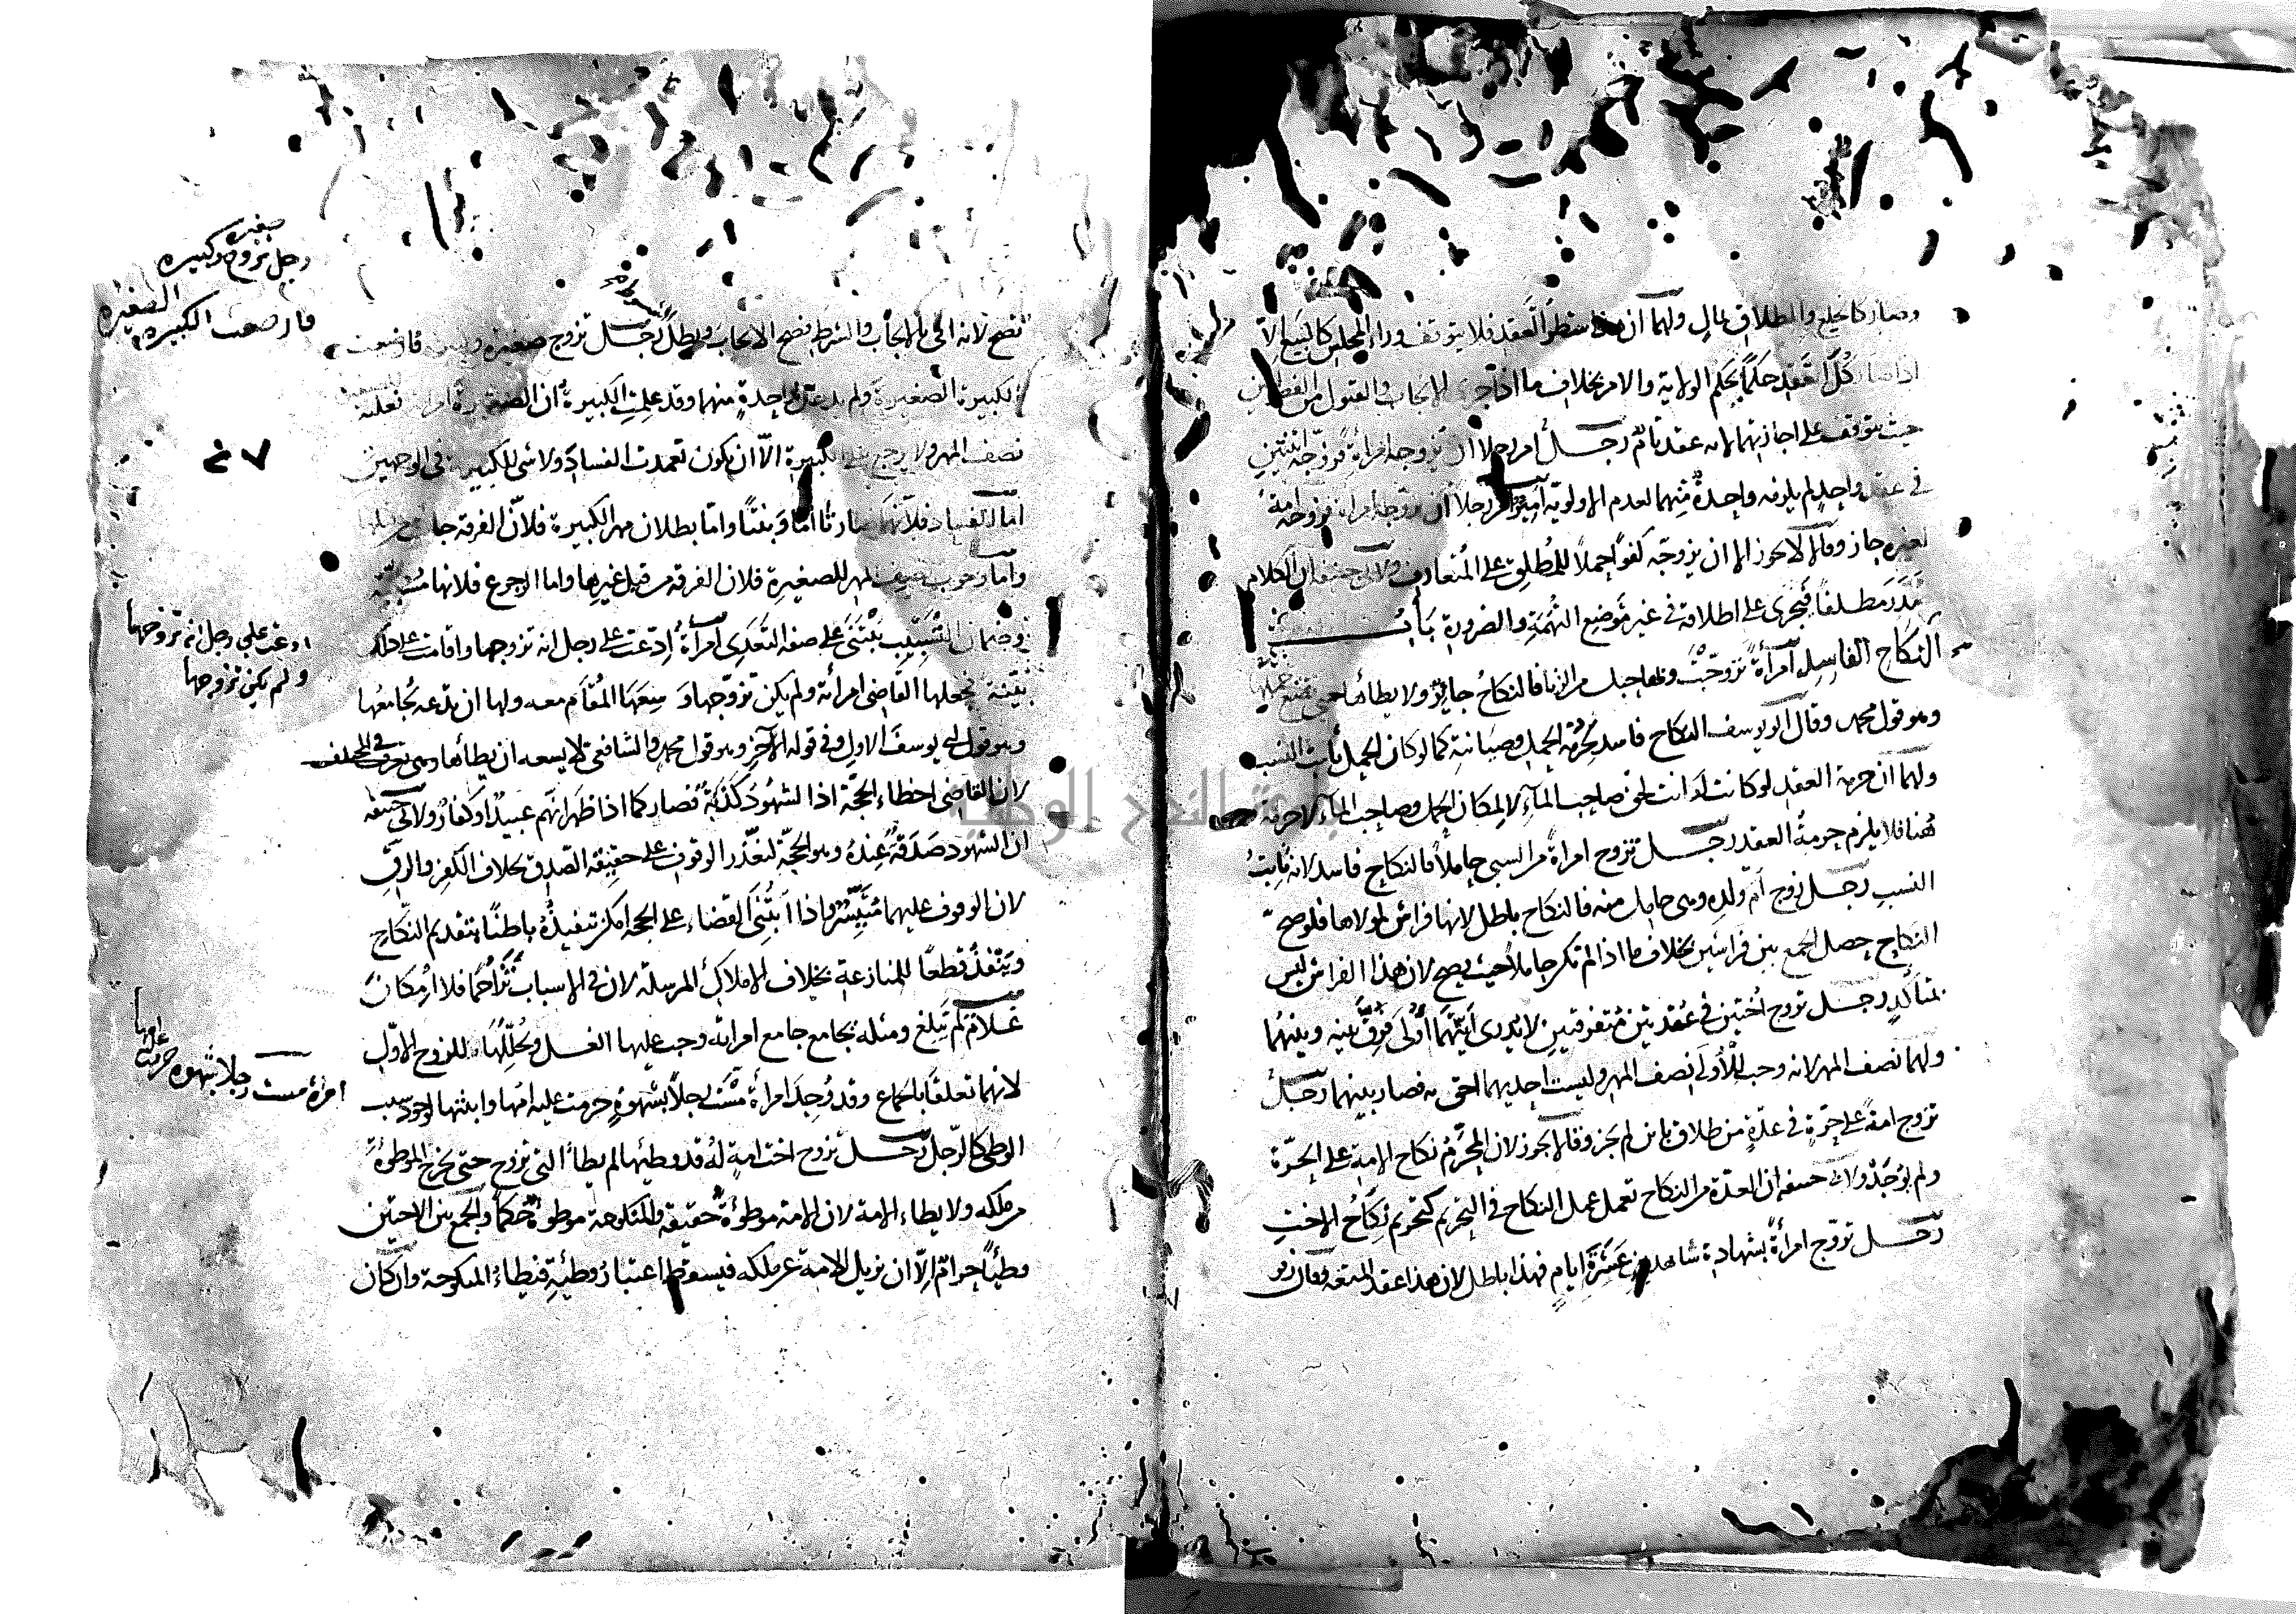 وصار كالخلع والطلاق بمال ولهما ان شطر العقد فلا يتوقف وراء المجلس كالبيع الا
اذا صار كل العقد حكما بحكم الولاية والامر بخلاف ما اذا جرى الايجاب والقبول من الفضوليين
حيث يتوقف على اجازتهما لانه عقد تام رجل امر رجلا ان يزوجه امرأة فزوجه اثنتين
في عقد واحد لم يلزمه واحدة منهما لعدم الاولوية امير امر رجلا ان يزوجه امرأة فزوجه امة
لغيره جاز وقالا لا يجوز الا ان يزوجه كفوا حملا للمطلق على المتعارف ولابي حنيفة ان الكلام
صدر مطلقا فيجرى على اطلاقه في غير موضع التهمة والضرورة باب
النكاح الفاسد امرأة تزوجت وبها حبل من الزنا فالنكاح جائز ولا يطاها حتى تضع حملها
وهو قول محمد وقال ابو يوسف النكاح فاسد لحرمة الحمل وصيانته كما لو كان الحمل ثابت النسب
ولهما ان حرمة العقد لو كانت لكانت لحق صاحب الماء لا لمكان الحمل وصاحب الماء لا حرمة له
ههنا فلا يلزم حرمة العقد رجل تزوج امرأة من السبي حاملا فالنكاح فاسد لانه ثابت
النسب رجل زوج ام ولده وهى حامل منه فالنكاح باطل لانها فراش لمولاها فلو صح
النكاح حصل الجمع بين فراشين بخلاف ما اذا لم تكن حاملا حيث يصح لان هذا الفراش ليس
بمتأكد رجل تزوج اختين في عقدتين متفرقتين لا يدرى ايتهما اولى فرق بينه وبينهما
ولهما نصف المهر لانه وجب للاولى نصف المهر وليست احديهما احق به فصار بينهما رجل
تزوج امة على حرة في عدة من طلاق بائن لم يجز وقالا يجوز لان المحرم نكاح الامة على الحرة
ولم يوجد ولابي حنيفة ان العدة من النكاح تعمل عمل النكاح في التحريم كتحريم نكاح الاخت
رجل تزوج امرأة بشهادة شاهدين عشرة ايام فهذا باطل لان هذا عقد المتعة وقال زفر
تصح لانه اتى بالايجاب والشرط فصح الايجاب وبطل رجل تزوج صغيرة وكبيرة فارضعت
الكبيرة الصغيرة ولم يدخل بواحدة منهما وقد علمت الكبيرة ان الصغيرة امرأته فعليه
نصف المهر ولا يرجع على الكبيرة الا ان تكون تعمدت الفساد ولا شى للكبيرة في الوجهين
اما الفساد فلانهما صارتا اما وبنتا واما بطلان مهر الكبيرة فلان الفرقة جاءت من قبلها
واما وجوب نصف المهر للصغيرة فلان الفرقة من قبل غيرها واما الرجوع فلانها مسببة
وضمان التسبيب يبتنى على صفة التعدى امرأة ادعت على رجل انه تزوجها واقامت على ذلك
بينة فجعلها القاضى امرأته ولم يكن تزوجها وسعها المقام معه ولها ان تدعه يجامعها
وهو قول ابى يوسف الاول وفي قوله الآخر وهو قول محمد والشافعى لا يسعه ان يطأها وهى تعرف في المختلف
لان القاضى اخطاء الحجة اذ الشهود كذبة فصار كما اذا ظهر انهم عبيد او كفار ولابى حنيفة
ان الشهود صدقة عنده وهو الحجة لتعذر الوقوف على حقيقة الصدق بخلاف الكفر والرق
لان الوقوف عليهما متيسر فاذا ابتنى القضاء على الحجة امكن تنفيذه باطنا بتقديم النكاح
وينفذ قطعا للمنازعة بخلاف الاملاك المرسلة لان في الاسباب تزاحما فلا امكان
غلام لم يبلغ ومثله يجامع جامع امرأته وجب عليها الغسل وتحللها للزوج الاول
لانهما تعلقا بالجماع وقد وجد امرأة مست رجلا بشهوة حرمت عليه امها وابنتها لوجود سبب
الوطى كالرجل رجل تزوج اخت امة له قد وطئها لم يطأ التى تزوج حتى يخرج الموطوءة
من ملكه ولا يطاء الامة لان الامة موطوءة حقيقة والمنكوحة موطوءة حكما والجمع بين الاختين
وطيا حرام الا ان يزيل الامة عن ملكه فيسقط اعتبار وطئه فيطاء المنكوحة وان كان
صغيرة
رجل تزوج وكبيرة
فارضعت الكبيرة الصغيرة
٤٧
ادعت على رجل انه تزوجها
ولم يكن تزوجها
امرأة مست رجلا بشهوة حرمت
عليه امها